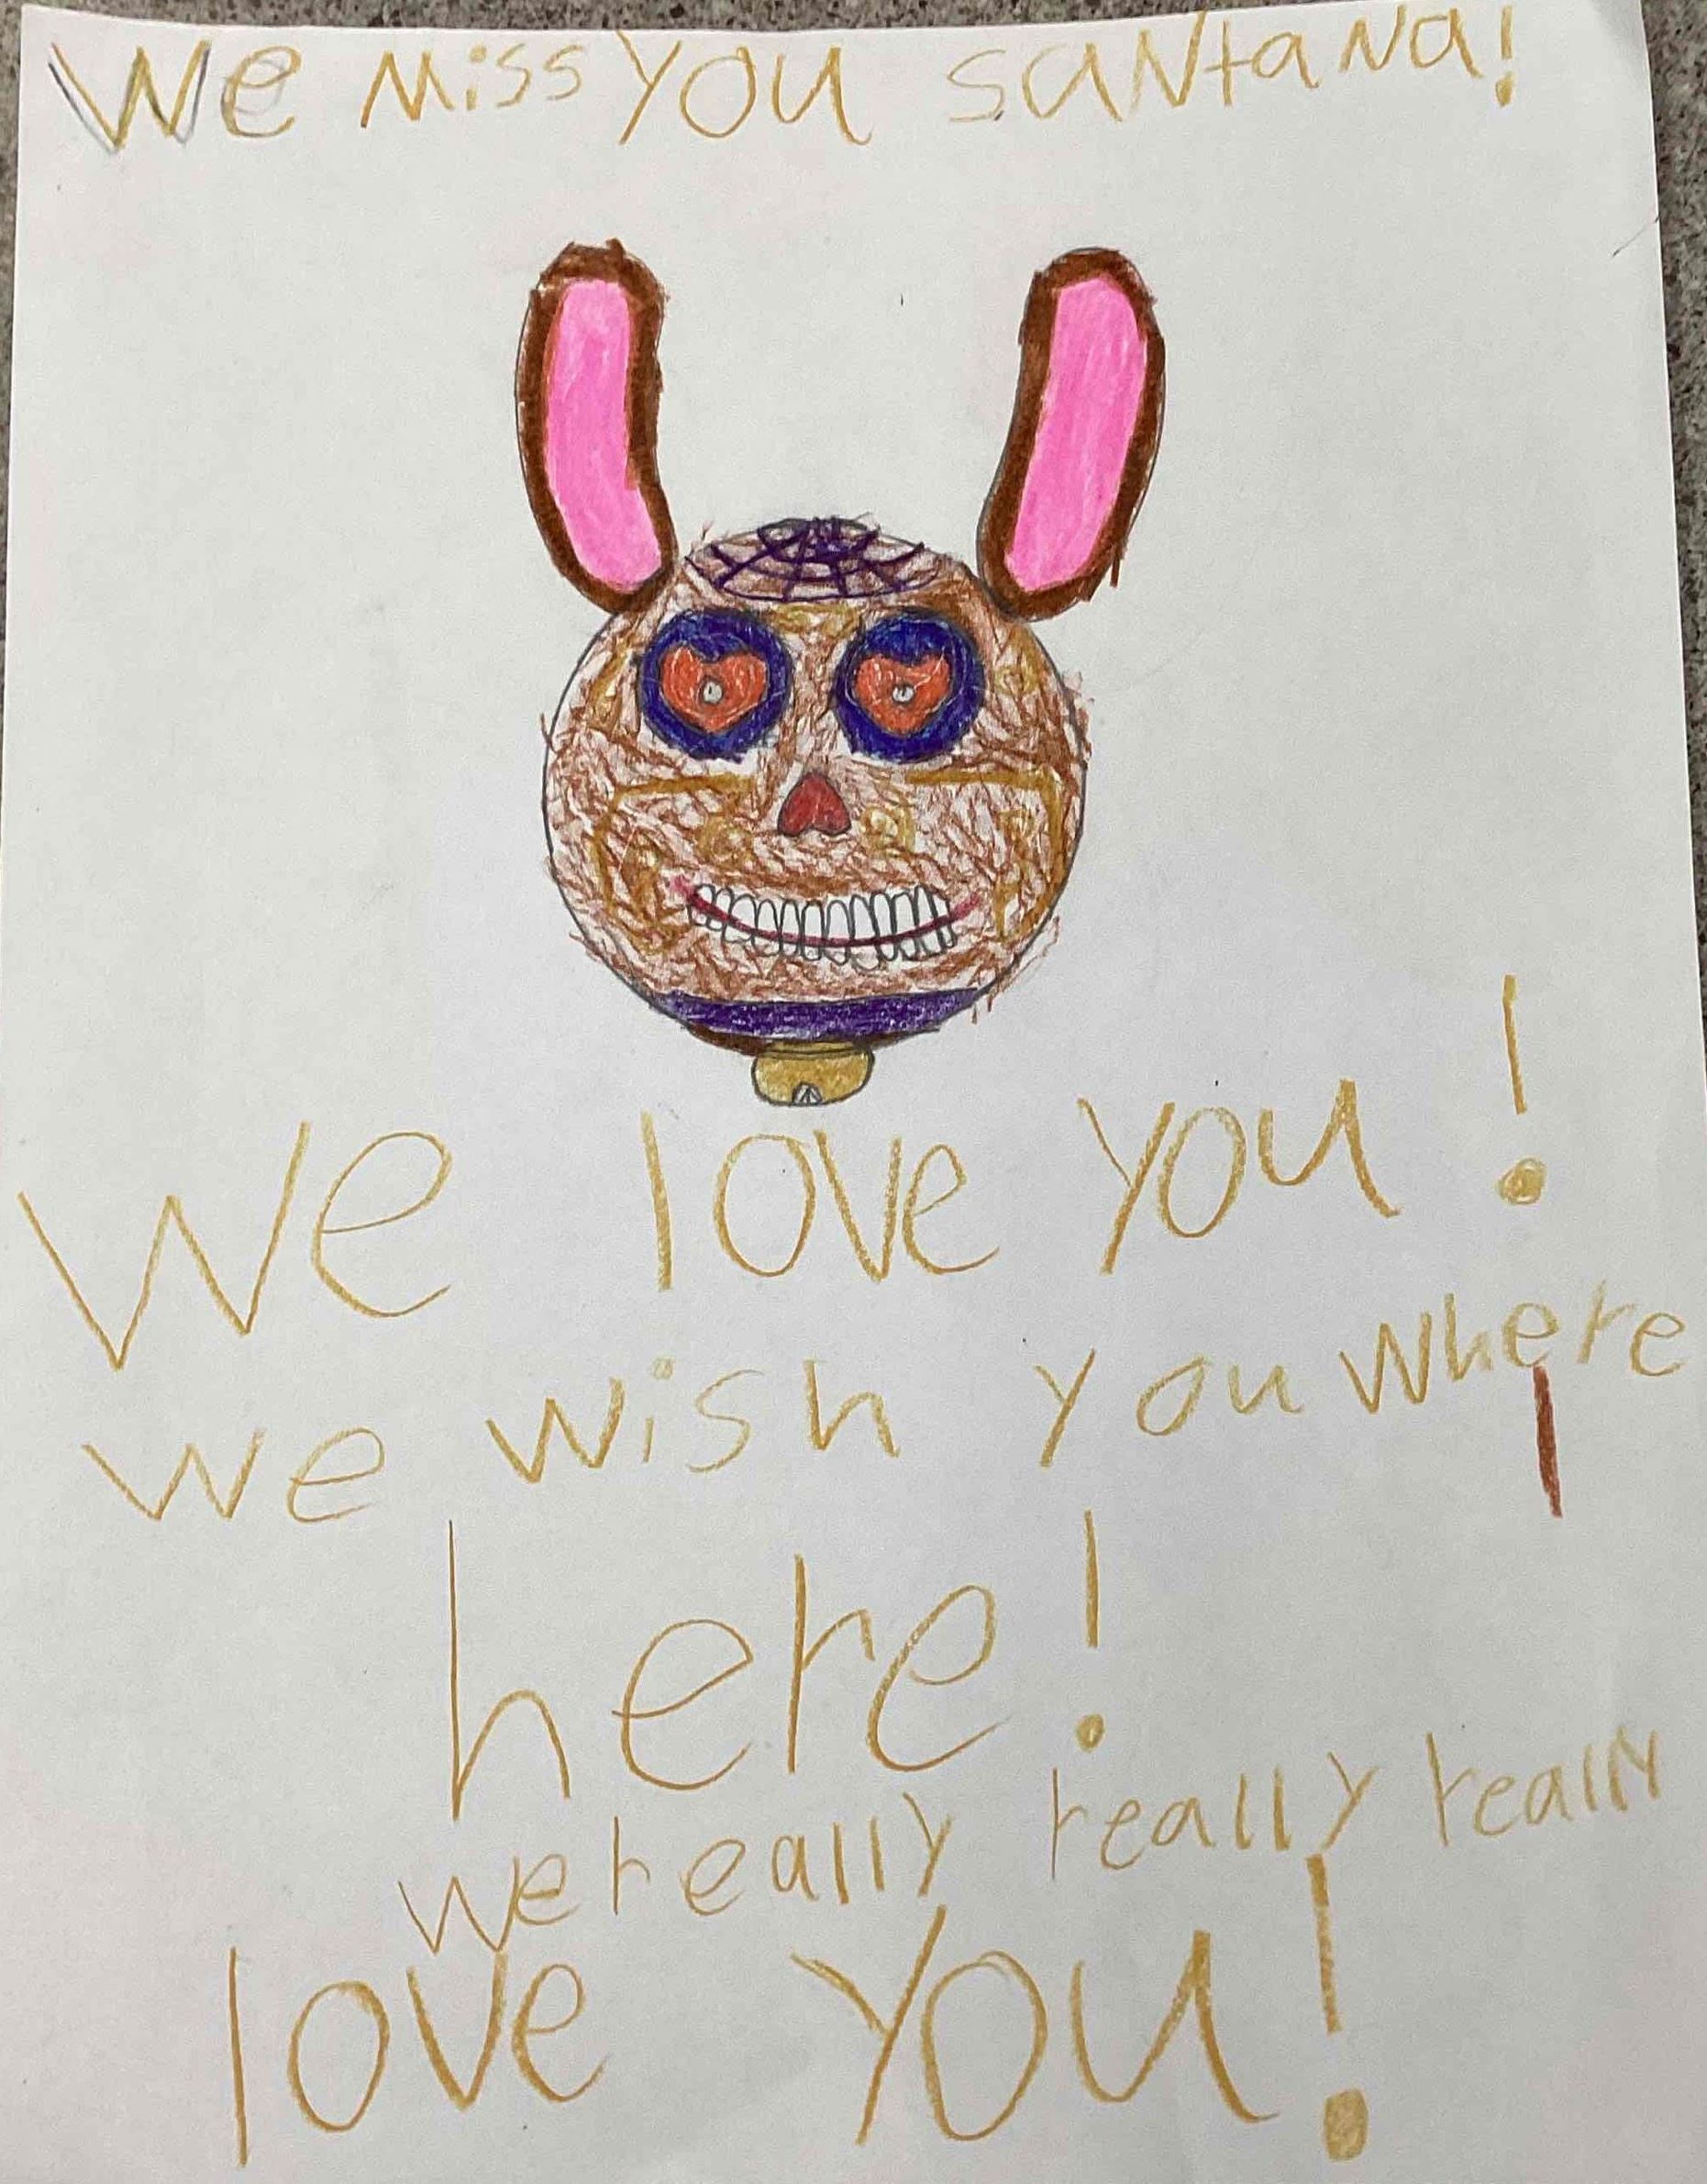 We miss you santana!
We love you!
we wish you where
here!
we really really really
love you!